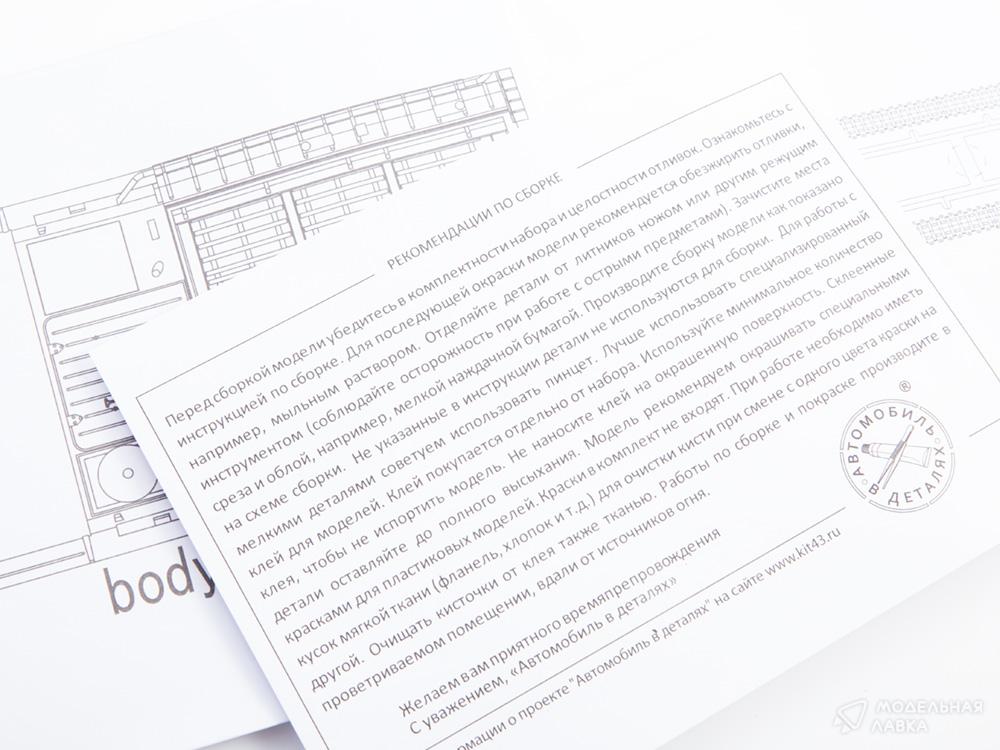 РЕКОМЕНДАЦИИ ПО СБОРКЕ
Перед сборкой модели убедитесь в комплектности набора и целостности отливок. Ознакомьтесь с
инструкцией по сборке. Для последующей окраски модели рекомендуется обезжирить отливки,
например, мыльным раствором. Отделяйте детали от литников ножом или другим режущим
инструментом (соблюдайте осторожность при работе с острыми предметами). Зачистите места
среза и облой, например, мелкой наждачной бумагой. Производите сборку модели как показано
на схеме сборки. Не указанные в инструкции детали не используются для сборки. Для работы с
мелкими деталями советуем использовать пинцет. Лучше использовать специализированный
клей для моделей. Клей покупается отдельно от набора. Используйте минимальное количество
клея, чтобы не испортить модель. Не наносите клей на окрашенную поверхность. Склеенные
детали оставляйте до полного высыхания. Модель рекомендуем окрашивать специальными
красками для пластиковых моделей. Краски в комплект не входят. При работе необходимо иметь
кусок мягкой ткани (фланель, хлопок и т.д.) для очистки кисти при смене с одного цвета краски на
другой. Очищать кисточки от клея также тканью. Работы по сборке и покраске производите в
проветриваемом помещении, вдали от источников огня.
Желаем вам приятного времяпрепровождения
С уважением, «Автомобиль в деталях»
рмации о проекте "Автомобиль в деталях" на сайте www.kit43.ru
АВТОМОБИЛЬ
В ДЕТАЛЯХ
®
body
МОДЕЛЬНАЯ
ЛАВКА